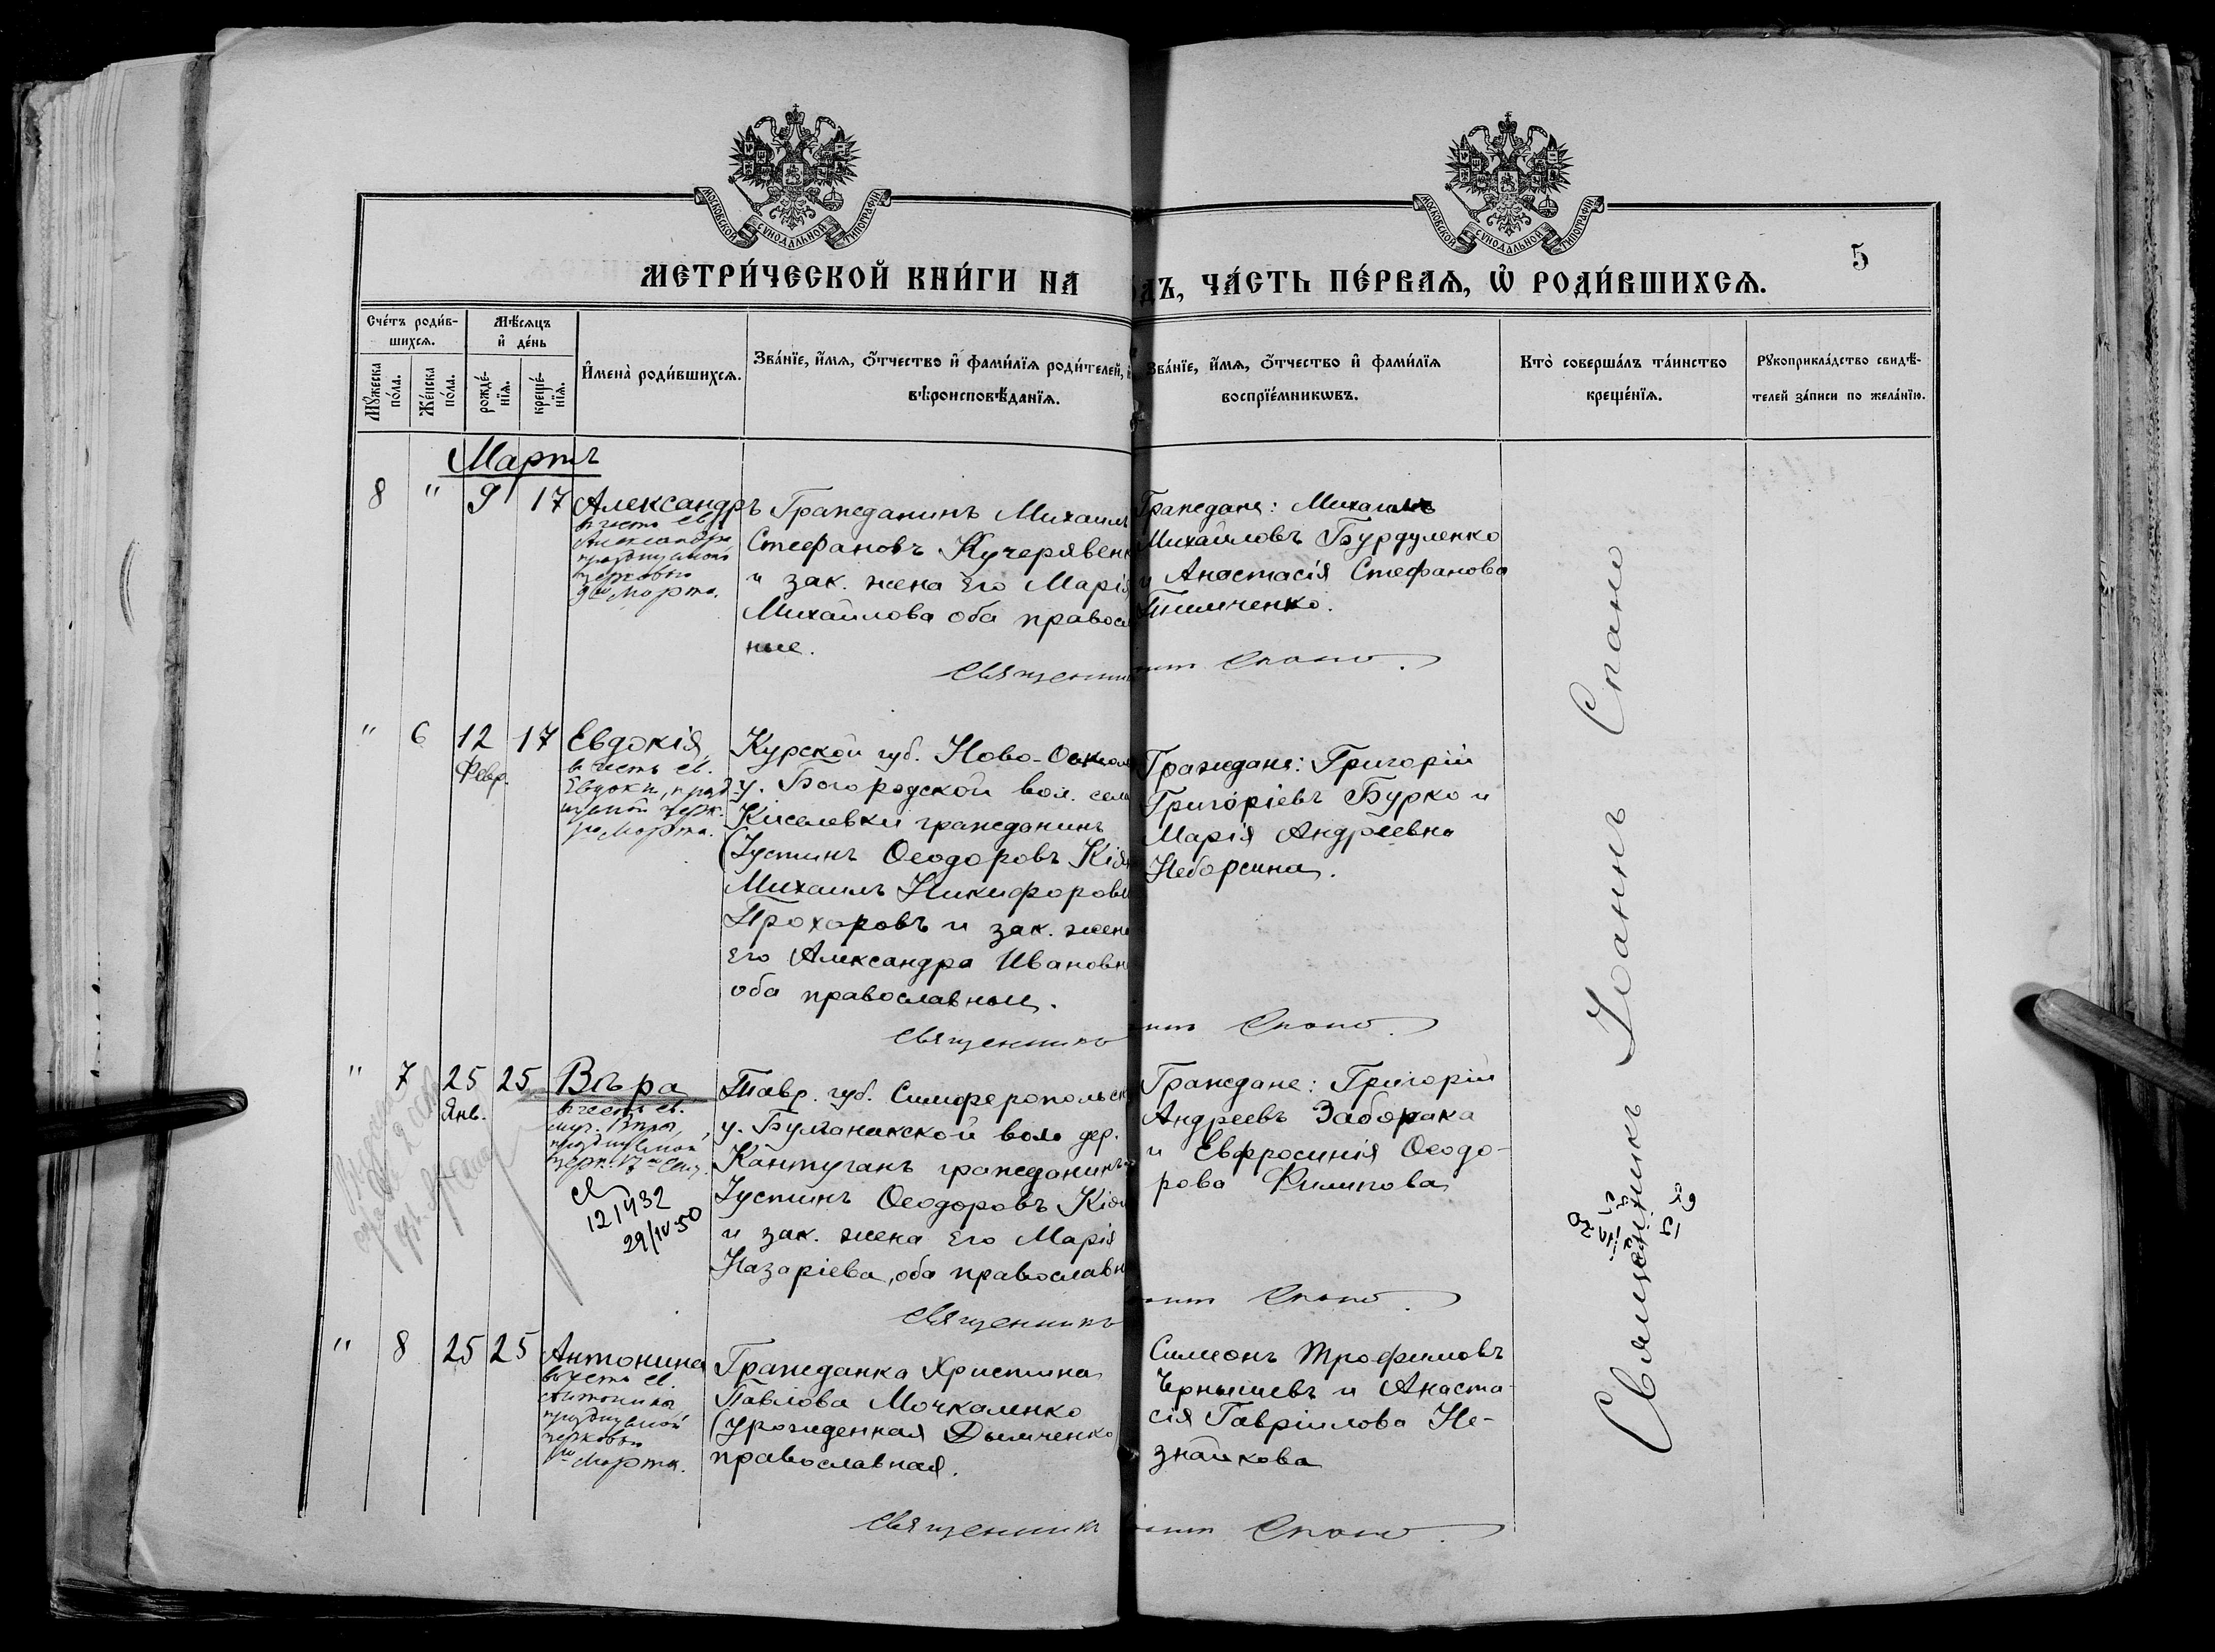 МОСКОВСКОЙ СѴНОДАЛЬНОЙ ТИПОГРАФІИ
МОСКОВСКОЙ СѴНОДАЛЬНОЙ ТИПОГРАФІИ
5
МЕТРИ́ЧЕСКОЙ КНИ́ГИ НА
ОДЪ, ЧА́СТЬ ПЕ́РВАѦ, Ѡ҆ РОДИ́ВШИХСѦ.
Сче́тъ роди́в-
шихсѧ.
Мꙋ́жеска по́ла.
Же́нска по́ла.
Мѣ́сѧцъ
и҆ де́нь
рожде́-
нїѧ.
креще́-
нїѧ.
И҆мена̀ роди́вшихсѧ.
Зва́нїе, и҆́мѧ, ѻ҆́тчество и҆ фами́лїѧ роди́телей, и҆
вѣ́роисповѣ́данїѧ.
Зва́нїе, и҆́мѧ, ѻ҆́тчество и҆ фами́лїѧ
воспрїе́мникѡвъ.
Кто̀ соверша́лъ та́инство
креще́нїѧ.
Рꙋкоприкла́дство свидѣ́-
телей за́писи по жела́нїю.
Мартъ
8 " 9 17
Александръ
в честь св.
Александра
празднуемой
церковью
9го Марта.
Гражданинъ Михаилъ
Стефановъ Кучерявенк
и зак. жена его Марія
Михайлова оба правосл
ные.
Граждане: Михаилъ
Михайловъ Бурдуленко
и Анастасія Стефанова
Тимченко.
Священни
ннъ Спано.
" 6 12 17
Февр.
Евдокія,
в честь св.
Евдокіи, празд-
нуемой церк.
1го Марта.
Курской губ. Ново-Оскол
у. Богородской вол. села
Киселевки гражданинъ
(Іустинъ Ѳеодоровъ Кія
Михаилъ Никифоровъ
Прохоровъ и зак. жена
его Александра Ивановн
оба православны.
Граждане: Григорій
Григоріевъ Бурко и
Марія Андреевна
Неборсина.
Священникъ
ннъ Спано.
" 7 25 25
Янв.
Вѣра
в честь св.
муч. Вѣры,
празднуемой
церк. 17го Сент.
121932
29/IV 50
Тавр. губ. Симферопольск
у. Булганакской вол. дер.
Кантуганъ гражданинъ
Іустинъ Ѳеодоровъ Кія
и зак. жена его Марія
Назаріева, оба православн
Граждане: Григорій
Андреевъ Заборака
и Евфросинія Ѳеодо-
рова Филипова
Священникъ
ннъ Спано.
" 8 25 25
Антонина
в честь св.
Антонины
празднуемой
церковью
1го Марта.
Гражданка Христина
Павлова Мочкаленко
(урожденная Дымченко
православная.
Симеонъ Трофимовъ
Чернышевъ и Анаста-
сія Гавріилова Не-
знайкова
Священник
ннъ Спано.
Священникъ Іоаннъ Спано